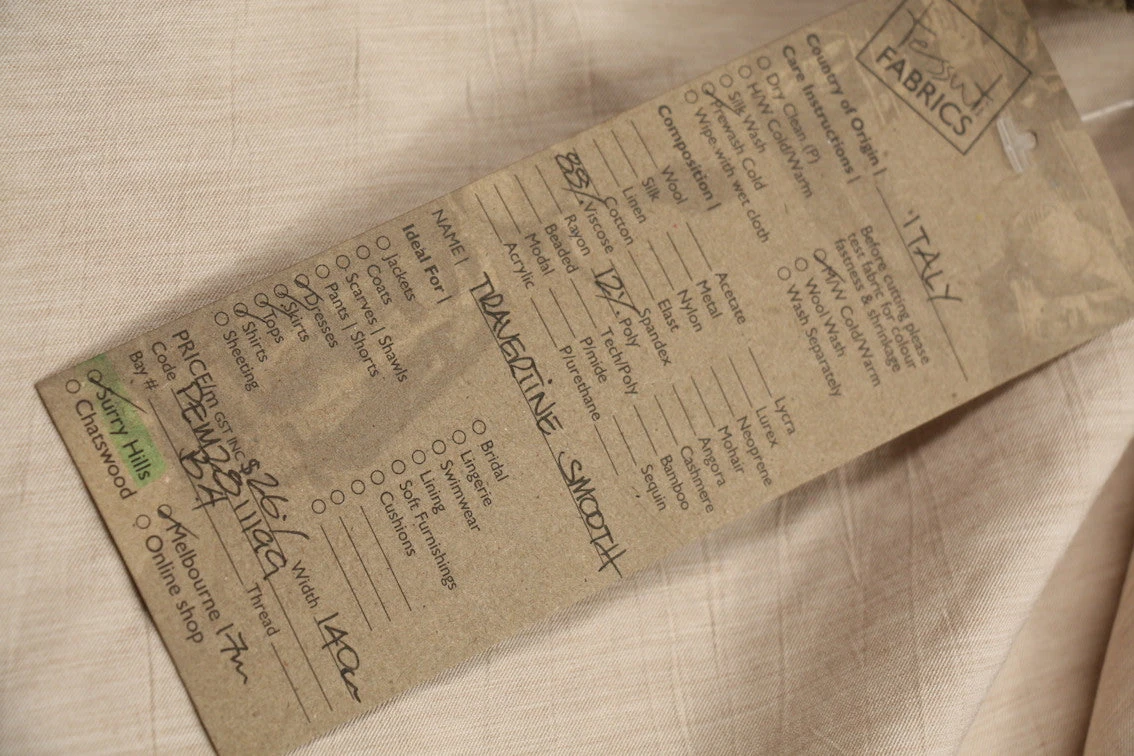 Tessuti
FABRICS
Country of Origin | ITALY
Care Instructions |
Dry Clean (P)
H/W Cold/Warm
Silk Wash
Prewash Cold
Wipe with wet cloth
Before cutting please
test fabric for colour
fastness & shrinkage
M/W Cold/Warm
Wool Wash
Wash Separately
Composition |
Wool
Silk
Linen
Cotton
88% Viscose
Rayon
Beaded
Modal
Acrylic
Acetate
Metal
Nylon
Elast
Spandex
12% Poly
Tech/Poly
P/mide
P/urethane
Lycra
Lurex
Neoprene
Mohair
Angora
Cashmere
Bamboo
Sequin
NAME | TRAVERTINE SMOOTH
Ideal For |
Jackets
Coats
Scarves | Shawls
Pants | Shorts
Dresses
Skirts
Tops
Shirts
Sheeting
Bridal
Lingerie
Swimwear
Lining
Soft Furnishings
Cushions
PRICE/m GST INC $26.- Width 140cm
Code Thread
Bay # B4
Surry Hills
Chatswood
Melbourne 17m
Online shop